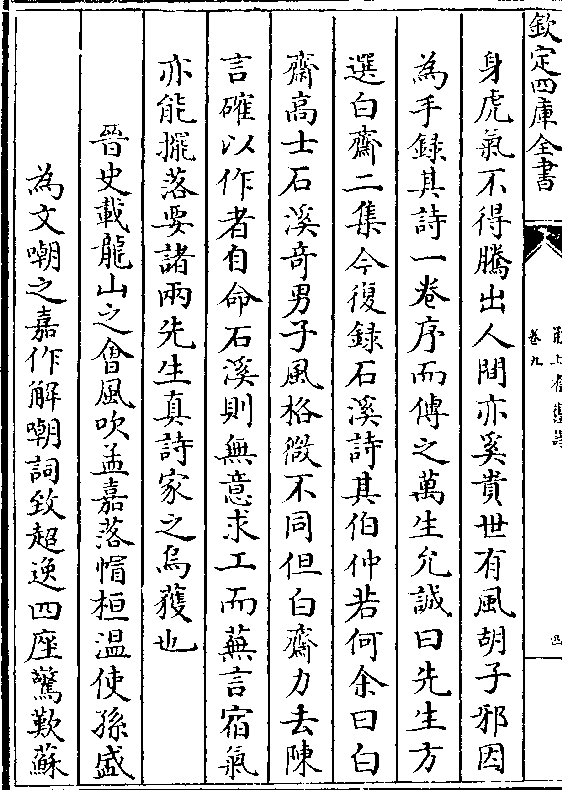 欽定四庫全書
卷九
身虎氣不得騰出人間亦奚貴世有風胡子邪因
為手録其詩一卷序而傳之萬生允誠曰先生方
選白齋二集今復録石溪詩其伯仲若何余曰白
齋高士石溪竒男子風格微不同但白齋力去陳
言確以作者自命石溪則無意求工而蕪言宿氣
亦能擺落要諸兩先生真詩家之烏獲也
晉史載龍山之會風吹孟嘉落帽桓溫使孫盛
為文嘲之嘉作解嘲詞致超逸四座驚歎蘇